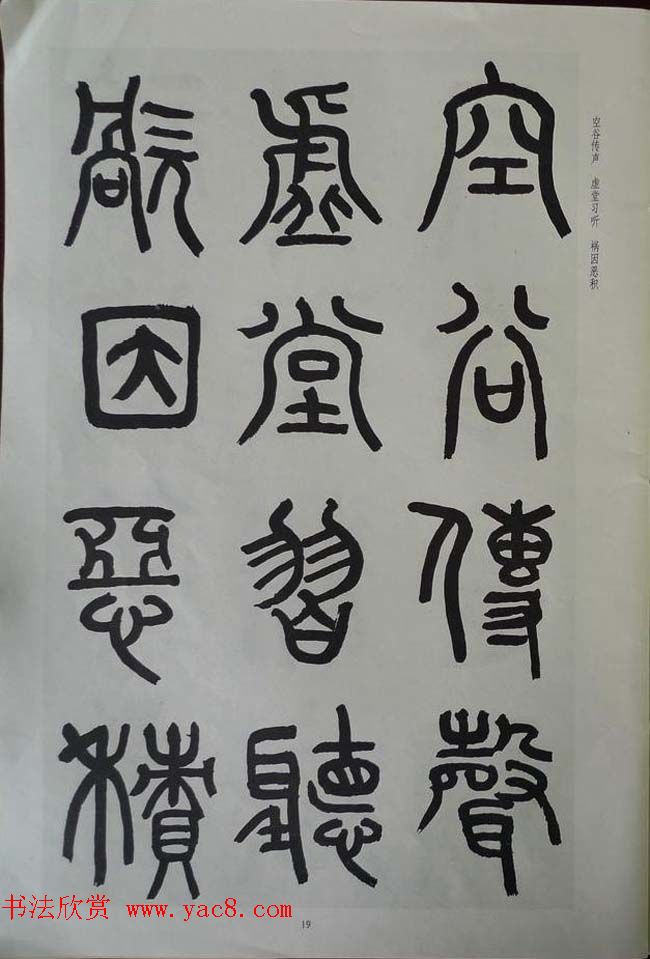 空谷傳聲
虛堂習聽
禍因惡積
空谷传声 虚堂习听 祸因恶积
书法欣赏 www.yac8.com
19